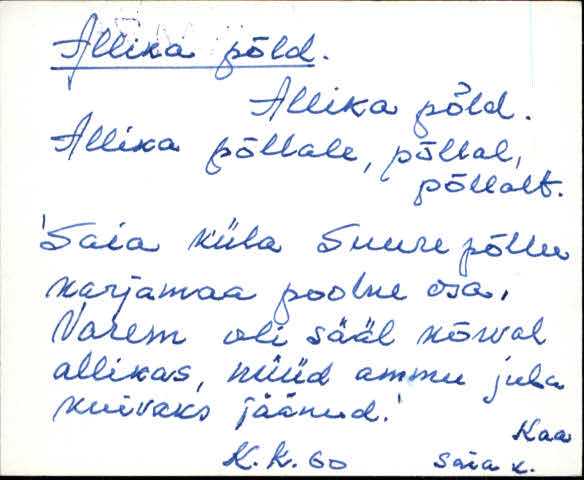 Allika põld.
Allika põld.
Allika põllale, põllal,
põllalt.
'Saia küla Suure põllu
karjamaa poolne osa.
Varem oli sääl kõrval
allikas, nüüd ammu juba
kuivaks jäänud.'
Kaa
K.K. 60 Saia k.